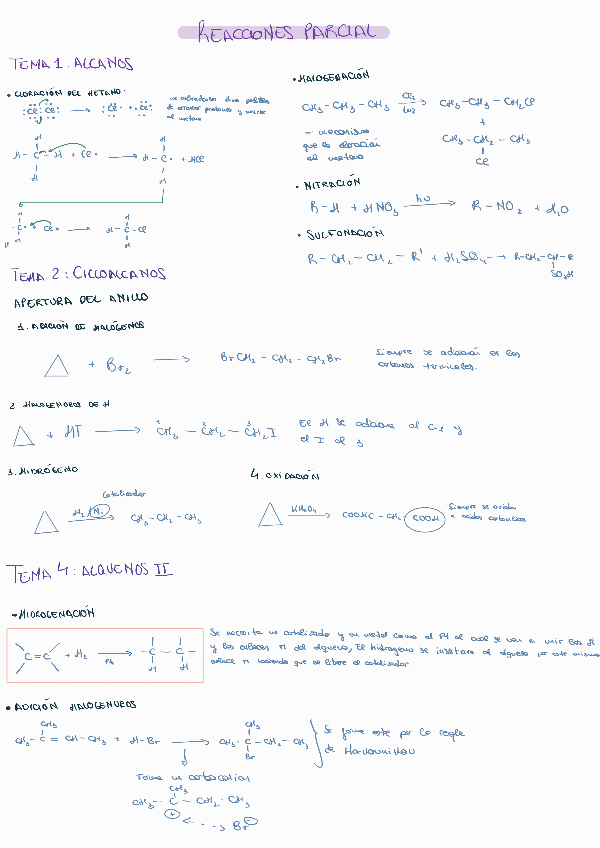 REACCIONES PARCIAL
TEMA 1: ALCANOS
• CLORACIÓN DEL METANO:
:Cl:Cl: → :Cl· + ·Cl:
al metano
H
H-C-H + Cl· → H-C· + HCl
H
H-C· + Cl· → H-C-Cl
H
• HALOGENACIÓN
CH3-CH2-CH3 Cl2 → CH3-CH2-CH2Cl
luz
+
CH3-CH2-CH3
Cl
- mecanismo
que la cloración
al metano
• NITRACIÓN
R-H + HNO3 hυ → R-NO2 + H2O
• SULFONACIÓN
R-CH2-CH2-R' + H2SO4 → R-CH2-CH-R
SO3H
TEMA 2: CICLOALCANOS
APERTURA DEL ANILLO
1. ADICIÓN DE HALÓGENOS
△ + Br2 → BrCH2-CH2-CH2Br
Siempre se adiciona en los
carbonos terminales.
2 HALOGENUROS DE H
△ + HI → CH3-CH2-CH2I
1 2 3
El H se adiciona al C-1 y
el I al 3
3. HIDRÓGENO
Catalizador
△ H2/Ni → CH3-CH2-CH3
4. OXIDACIÓN
△ KMnO4 → COOHC-CH2 COOH
Siempre se oxidan
a ácidos carboxílicos
TEMA 4: ALQUENOS II
- HIDROGENACIÓN
C=C + H2 → -C-C-
Pt
H H
Se necesita un catalizador y un metal como el Pt al cual se van a unir los H
y los enlaces π del alqueno, El hidrógeno se insertará al alqueno por este mismo
enlace π haciendo que se libere el catalizador
• ADICIÓN HALOGENUROS
CH3
CH3-C=CH-CH3 + H-Br → CH3-C-CH2-CH3
CH3
Br
Se forma este por la regla
de Markovnikov
Forma un carbocation
CH3
CH3-C-CH2-CH3
⊕ Br⊖